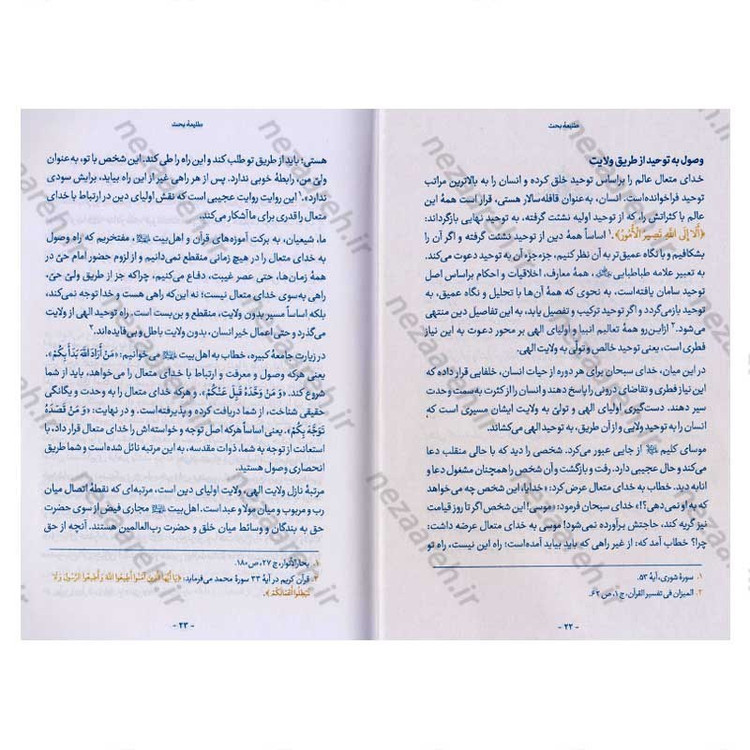 طلیعهٔ بحث
وصول به توحید از طریق ولایت
خدای متعال عالم را براساس توحید خلق کرده و انسان را به بالاترین مراتب
توحید فراخوانده‌است. انسان، به‌عنوان قافله‌سالار هستی، قرار است همهٔ این
عالم با کثراتش را، که از توحید اولیه نشئت گرفته، به توحید نهایی بازگرداند:
﴿أَلَا إِلَى اللَّهِ تَصِيرُ الْأُمُورُ﴾.۱ اساساً همهٔ دین از توحید نشئت گرفته و اگر آن را
بشکافیم و با نگاه عمیق به آن نظر کنیم، جزءجزء آن، به توحید دعوت می‌کند.
به تعبیر علامه طباطبایی، همهٔ معارف، اخلاقیات و احکام براساس اصل
توحید سامان یافته‌است، به نحوی که همهٔ آن‌ها با تحلیل و نگاه عمیق، به
توحید بازمی‌گردد و اگر توحید ترکیب و تفصیل یابد، به این تفاصیل دین منتهی
می‌شود.۲ ازاین‌رو همهٔ تعالیم انبیا و اولیای الهی بر محور دعوت به این نیاز
فطری است، یعنی توحید خالص و تولّی به ولایت الهی.
در این میان، خدای سبحان برای هر دوره از حیات انسان، خلفایی قرار داده که
این نیاز فطری و تقاضای درونی را پاسخ دهند و انسان را از کثرت به‌سمت وحدت
سیر دهند. دست‌گیری اولیای الهی و تولّی به ولایت ایشان مسیری است که
انسان را به توحید ولایی و از آن طریق، به توحید الهی می‌کشاند.
موسای کلیم از جایی عبور می‌کرد. شخصی را دید که با حالی منقلب دعا
می‌کند و حال عجیبی دارد. رفت و بازگشت و آن شخص را همچنان مشغول دعا و
انابه دید. خطاب به خدای متعال عرض کرد: «خدایا، این شخص چه می‌خواهد
که به او نمی‌دهی؟!» خدای سبحان فرمود: «موسی! این شخص اگر تا روز قیامت
نیز گریه کند، حاجتش برآورده نمی‌شود! موسی به خدای متعال عرضه داشت:
چرا؟ خطاب آمد که: از غیر راهی که باید بیاید آمده‌است؛ راه این نیست، راه تو
۱. سورهٔ شوری، آیهٔ ۵۳.
۲. المیزان فی تفسیر القرآن، ج۱، ص۶۲.
- ۲۲ -
طلیعهٔ بحث
هستی؛ باید از طریق تو طلب کند و این راه را طی کند. این شخص با تو، به‌عنوان
ولیّ من، رابطهٔ خوبی ندارد. پس از هر راهی غیر از این راه بیاید، برایش سودی
ندارد».۱ این روایت روایت عجیبی است که نقش اولیای دین در ارتباط با خدای
متعال را قدری برای ما آشکار می‌کند.
ما، شیعیان، به برکت آموزه‌های قرآن و اهل‌بیت، مفتخریم که راه وصول
به خدای متعال را در هیچ زمانی منقطع نمی‌دانیم و از لزوم حضور امام حیّ در
همهٔ زمان‌ها، حتی عصر غیبت، دفاع می‌کنیم، چراکه جز از طریق ولیّ حیّ،
راهی به‌سوی خدای متعال نیست؛ نه این‌که راهی هست و خدا توجه نمی‌کند،
بلکه اساساً مسیر بدون ولایت، منقطع و بن‌بست است. راه توحید الهی از ولایت
می‌گذرد و حتی اعمال خیر انسان، بدون ولایت باطل و بی‌فایده‌اند.۲
در زیارت جامعهٔ کبیره، خطاب به اهل‌بیت می‌خوانیم: «مَنْ أَرَادَ اللَّهَ بَدَأَ بِكُمْ»،
یعنی هرکه وصول و معرفت و ارتباط با خدای متعال را می‌خواهد، باید از شما
شروع کند. «وَ مَنْ وَحَّدَهُ قَبِلَ عَنْكُمْ»، و هرکه خدای متعال را به وحدت و یگانگی
حقیقی شناخت، از شما دریافت کرده و پذیرفته‌است. و در نهایت: «وَ مَنْ قَصَدَهُ
تَوَجَّهَ بِكُمْ»، یعنی اساساً هرکه اصل توجه و خواسته‌اش را خدای متعال قرار داد، با
استعانت از توجه به شما، ذوات مقدسه، به این مرتبه نائل شده‌است و شما طریق
انحصاری وصول هستید.
مرتبهٔ نازل ولایت الهی، ولایت اولیای دین است، مرتبه‌ای که نقطهٔ اتصال میان
رب و مربوب و میان مولا و عبد است. اهل‌بیت مجاری فیض از سوی حضرت
حق به بندگان و وسائط میان خلق و حضرت رب‌العالمین هستند. آنچه از حق
۱. بحارالأنوار، ج۲۷، ص۱۸۰.
۲. قرآن کریم در آیهٔ ۳۳ سورهٔ محمد می‌فرماید: ﴿يَا أَيُّهَا الَّذِينَ آمَنُوا أَطِيعُوا اللَّهَ وَ أَطِيعُوا الرَّسُولَ وَ لَا
تُبْطِلُوا أَعْمَالَكُمْ﴾.
- ۲۳ -
nezaareh.ir